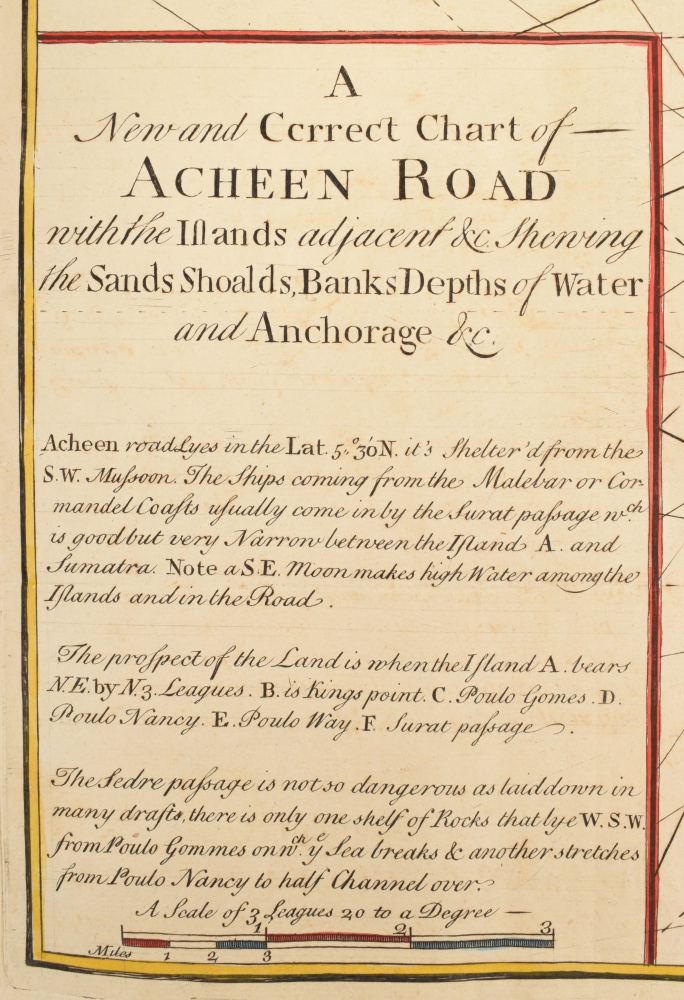 A
New and Ccrrect Chart of —
ACHEEN ROAD
with the Iſlands adjacent &c. Shewing
the Sands Shoalds, Banks Depths of Water
and Anchorage &c.
Acheen road Lyes in the Lat. 5.° 30' N. it's Shelter'd from the
S.W. Muſsoon. The Ships coming from the Malebar or Cor-
mandel Coaſts uſually come in by the Surat paſsage wch.
is good but very Narrow between the Iſland A. and
Sumatra. Note a S.E. Moon makes high Water among the
Iſlands and in the Road.
The proſpect of the Land is when the Iſland A. bears
N.E. by N. 3. Leagues. B. is Kings point. C. Poulo Gomes. D.
Poulo Nancy. E. Poulo Way. F. Surat paſsage.
The Sedre paſsage is not so dangerous as laid down in
many drafts, there is only one shelf of Rocks that lye W. S.W.
from Poulo Gommes on wch. ye Sea breaks & another stretches
from Poulo Nancy to half Channel over.
A Scale of 3 Leagues 20 to a Degree —
1 2 3
Miles 1 2 3